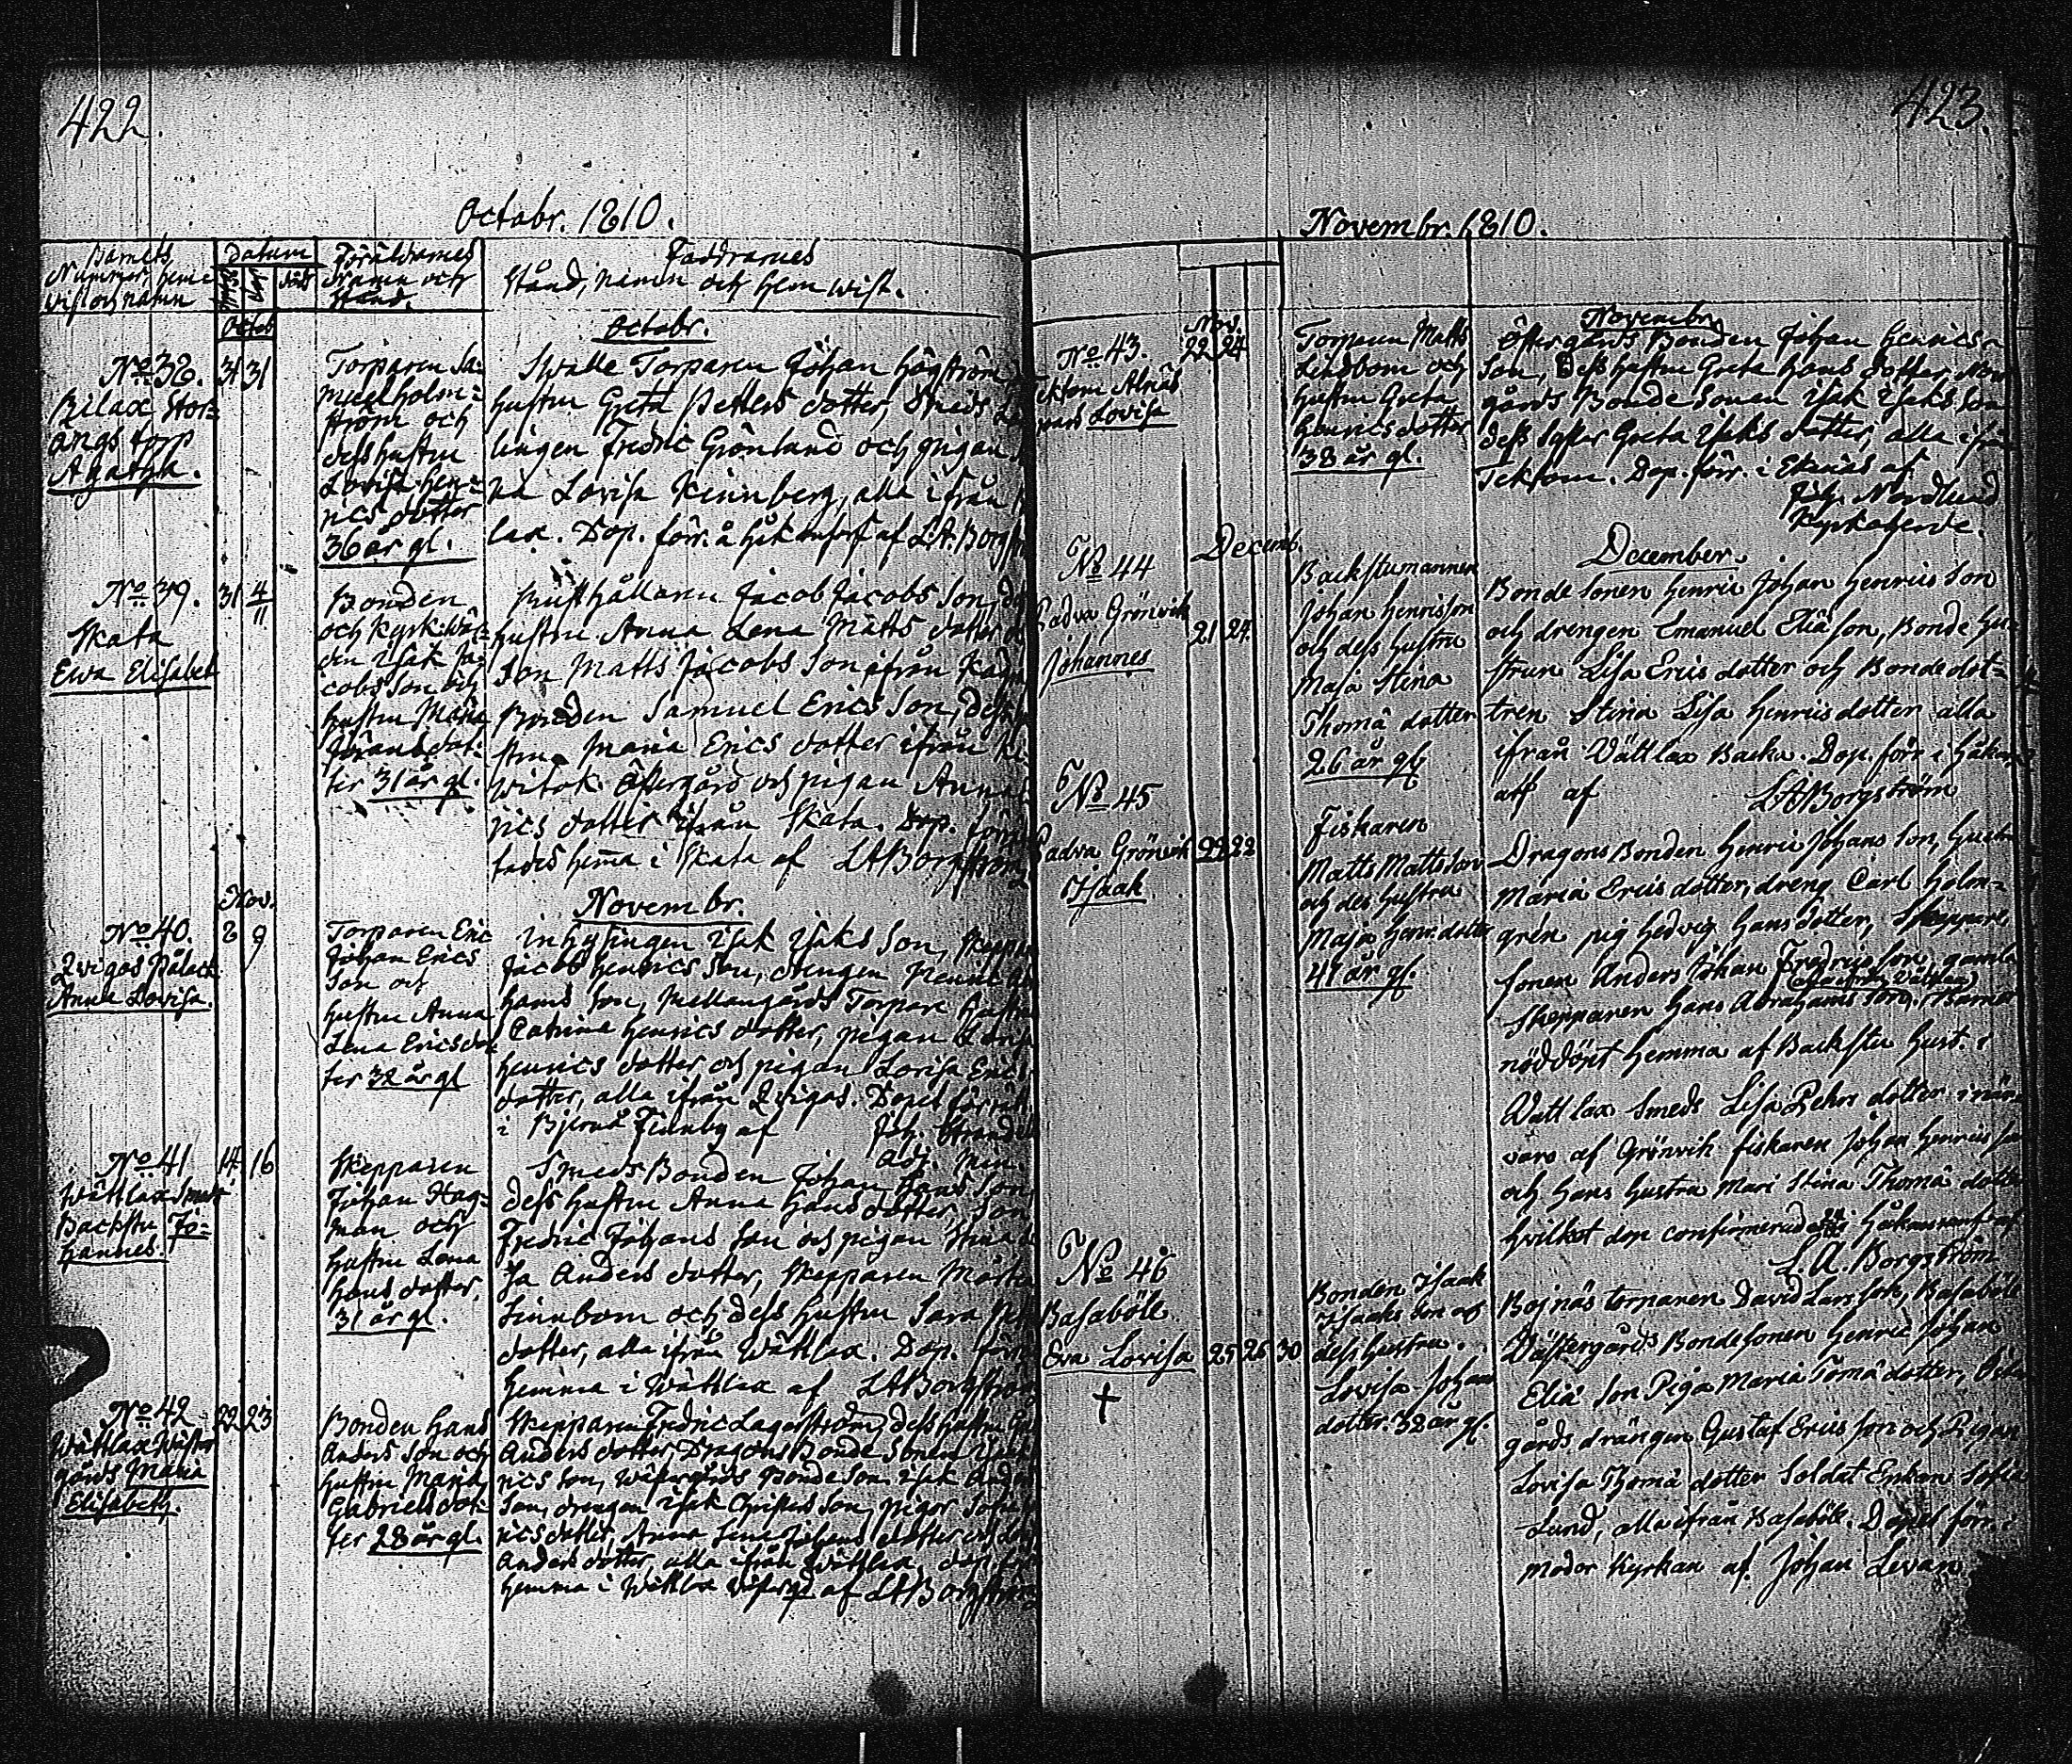 422.
Octobr. 1810.
Barnets
Nummer, hem-
vist och namn
Datum
död
Föräldrarnes
Namn och
Stånd.
Faddrarnes
Stånd, namn och hemwist.
Octob
Octobr.
No 38.
Bilax Stor-
ängs torp
Agatha.
31 31
Torparen Sa-
muel Holm-
ström och
dess hustru
Lovisa Hen-
rics dotter
36 år gl.
Torparen Johan Högström,
hustru Greta Petters dotter, Smeds
lingen Fredric Grönlund och pigan
na Lovisa Kinnberg, alla ifrån
lax. Dop. förr. å af LA. Borgst
No 39.
Skata
Ewa Elisabet
31 4/11
Bonden
och Kyrkwär-
den Isak Ja-
cobs Son och
hustru Maria
Görans dot-
ter 31 år gl.
Rusthållaren Jacob Jacobs Son,
hustru Anna Lena Matts dotter
Son Matts Jacobs Son ifrån
Bonden Samuel Erics Son, dess
stru Maria Erics dotter ifrån
witok Östergård och pigan Anna
rics dotter ifrån Skata. Dop. förrät
tades hema i Skata af LABorgström
Nov.
Novembr.
No 40.
Qvigos
Anna Lovisa.
8 9
Torparen Eric
Johan Erics
Son och
hustru Anna
Lena Ericsdot
ter 32 år gl
Inhysingen Isak Isaks Son, Skeppa
Jacob Henrics Son, drengen
hams Son, Mellangårds Torpare hustru
Catrina Henrics dotter, pigan
Henrics dotter och pigan Lovisa Erics
dotter, alla ifrån Qvigos. Dopet förrätt
i Bjernå Finnby af Joh. Strand
Adj. Min.
No 41
Wättlax Smeds
Backstu Jo-
hannes.
14 16
Skepparen
Johan Hag-
man och
hustru Lena
Hans dotter,
31 år gl.
Smeds Bonden Johan Hans Son,
dess hustru Anna Hans dotter, Son
Fredric Johans Son och pigan Stina
sa Anders dotter, Skepparen Mårten
Linnbom och dess hustru Sara
dotter, alla ifrån Wättlax. Dop. förr
hemma i Wättlax af LABorgström
No 42
Wättlax Wäster
gårds Maria
Elisabeth.
22 23
Bonden Hans
Anders Son och
hustru Maria
Gabriels dot-
ter 28 år gl.
Skepparen Fredric Lagerström, dess hustru
Anders dotter Dragons Bonde Sonen Isak
rics Son, Westergårds Bonde Son Isak Anders
Son, drengen Isak Son, pigor Sofia
rics dotter Anna Lena Johans dotter och
Anders dotter alla ifrån Wättlax, Dop. förr
hemma i Wättlax af LABorgström
423.
Novembr. 1810.
Nov.
Novembr.
No 43.
Tektom Alnäs
Lovisa
22 24
Torparen Matts
Lindbom och
hustru Greta
Henrics dotter
38 år gl.
Östergårds Bonden Johan Henrics
Son, dess hustru Greta Hans dotter, Norr
gårds Bonde Sonen Isak Isaks Son
dess Syster Greta Isaks dotter, alla ifrån
Tektom. Dop. förr. i Ekenäs af
Joh. Nordlund
Kyrkoherde.
Decemb.
December
No 44
Padva Grönvik
Johannes
21 24
Backstumannen
Johan Henrisson
och dess hustru
Maja Stina
Thomä dotter
26 år gl
Bonde sonen Henric Johan Henrics Son
och drengen Emanuel Eliä son, Bonde hu-
strun Lisa Erics dotter och Bonde dot-
tren Stina Lisa Henrics dotter alla
ifrån Wättlax Backu. Dop. förr i Håkans
af LABorgström
No 45
Padva Grönvik
Isaak
22 22
Fiskaren
Matts Mattsson
och des hustru
Maja Henr. dotter
41 år gl.
Dragons Bonden Henric Johans Son, hustru
Maria Erics dotter, dreng Carl Holm-
grén pig Hedvig Hans dotter, Skeppare
sonen Anders Johan Fredrics son, gamla
Skepparen Hans Abrahams Son. (Barnet
nöddöpt hemma af Backstu Hust. i
Wättlax Smeds Lisa Pehrs dotter i när-
varo af Grönvik fiskaren Johan Henrics son
och hans hustru Mari Stina Thomä dotter
hvilket dop confirmerades i af
L. A. Borgström
No 46
Basaböle
Eva Lovisa
†
25 26 30
Bonden Isaak
Isaaks Son och
dess hustru
Lovisa Johan
dotter. 32 år gl.
Bojnäs torparen David Lars son, Basaböle
Västergårds Bondesonen Henric Johan
Eliä Son Piga Maria Tomä dotter, Öster
gårds drängen Gustaf Erics son och Pigan
Lovisa Thomä dotter Soldat Enkan Sofia
Lund, alla ifrån Basaböle. Dopet förr. i
moder Kyrkan af Johan Levan